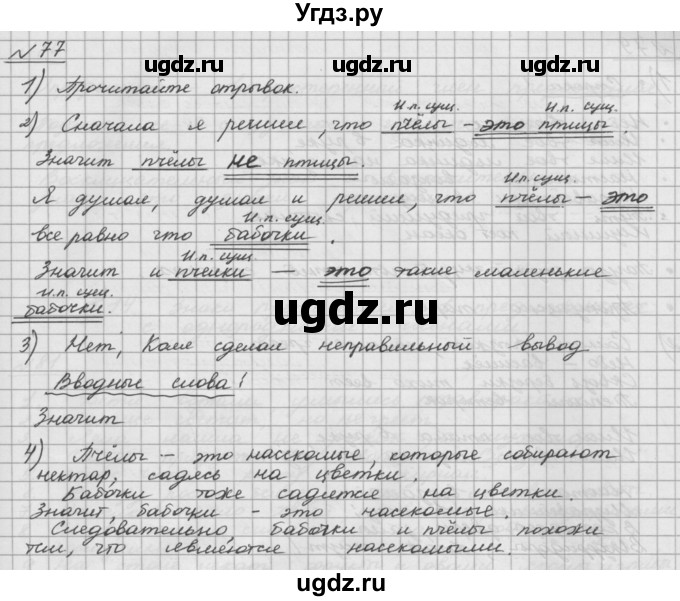 Угдз.ру
№ 77
1) Прочитайте отрывок.
И.п. сущ. И.п. сущ.
2) Сначала я решил, что пчёлы – это птицы.
Значит пчёлы не птицы.
И.п. сущ.
Я думал, думал и решил, что пчёлы – это
И.п. сущ.
все равно что бабочки.
И.п. сущ.
Значит и пчелки – это такие маленькие
И.п. сущ.
бабочки.
3) Нет, Коля сделал неправильный вывод
Вводные слова!
Значит
4) Пчёлы – это насекомые, которые собирают
нектар, садясь на цветки.
Бабочки тоже садятся на цветки.
Значит, бабочки – это насекомые.
Следовательно, бабочки и пчёлы похожи
тем, что являются насекомыми.
ugdz.ru ugdz.ru
ugdz.ru
ugdz.ru
ugdz.ru ugdz.ru
ugdz.ru